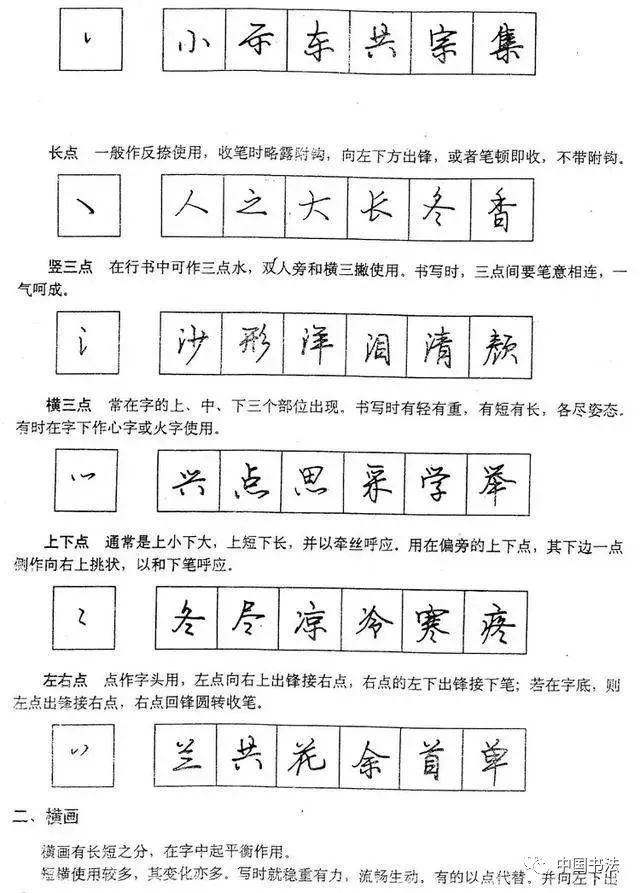 小 示 东 共 宗 集
长点 一般作反捺使用，收笔时略露附钩，向左下方出锋，或者笔顿即收，不带附钩。
人 之 大 长 冬 香
竖三点 在行书中可作三点水，双人旁和横三撇使用。书写时，三点间要笔意相连，一
气呵成。
氵 沙 形 洋 泪 清 颜
横三点 常在字的上、中、下三个部位出现。书写时有轻有重，有短有长，各尽姿态。
有时在字下作心字或火字使用。
兴 点 思 采 学 举
上下点 通常是上小下大，上短下长，并以牵丝呼应。用在偏旁的上下点，其下边一点
侧作向右上挑状，以和下笔呼应。
冬 尽 凉 冷 寒 疼
左右点 点作字头用，左点向右上出锋接右点，右点的左下出锋接下笔；若在字底，则
左点出锋接右点，右点回锋圆转收笔。
兰 共 花 余 首 单
二、横画
横画有长短之分，在字中起平衡作用。
短横使用较多，其变化亦多。写时就稳重有力，流畅生动，有的以点代替。并向左下出
中国书法